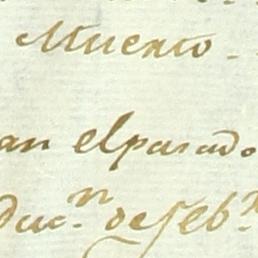 Muerto.
an el pasado
duc.n de Feb.r